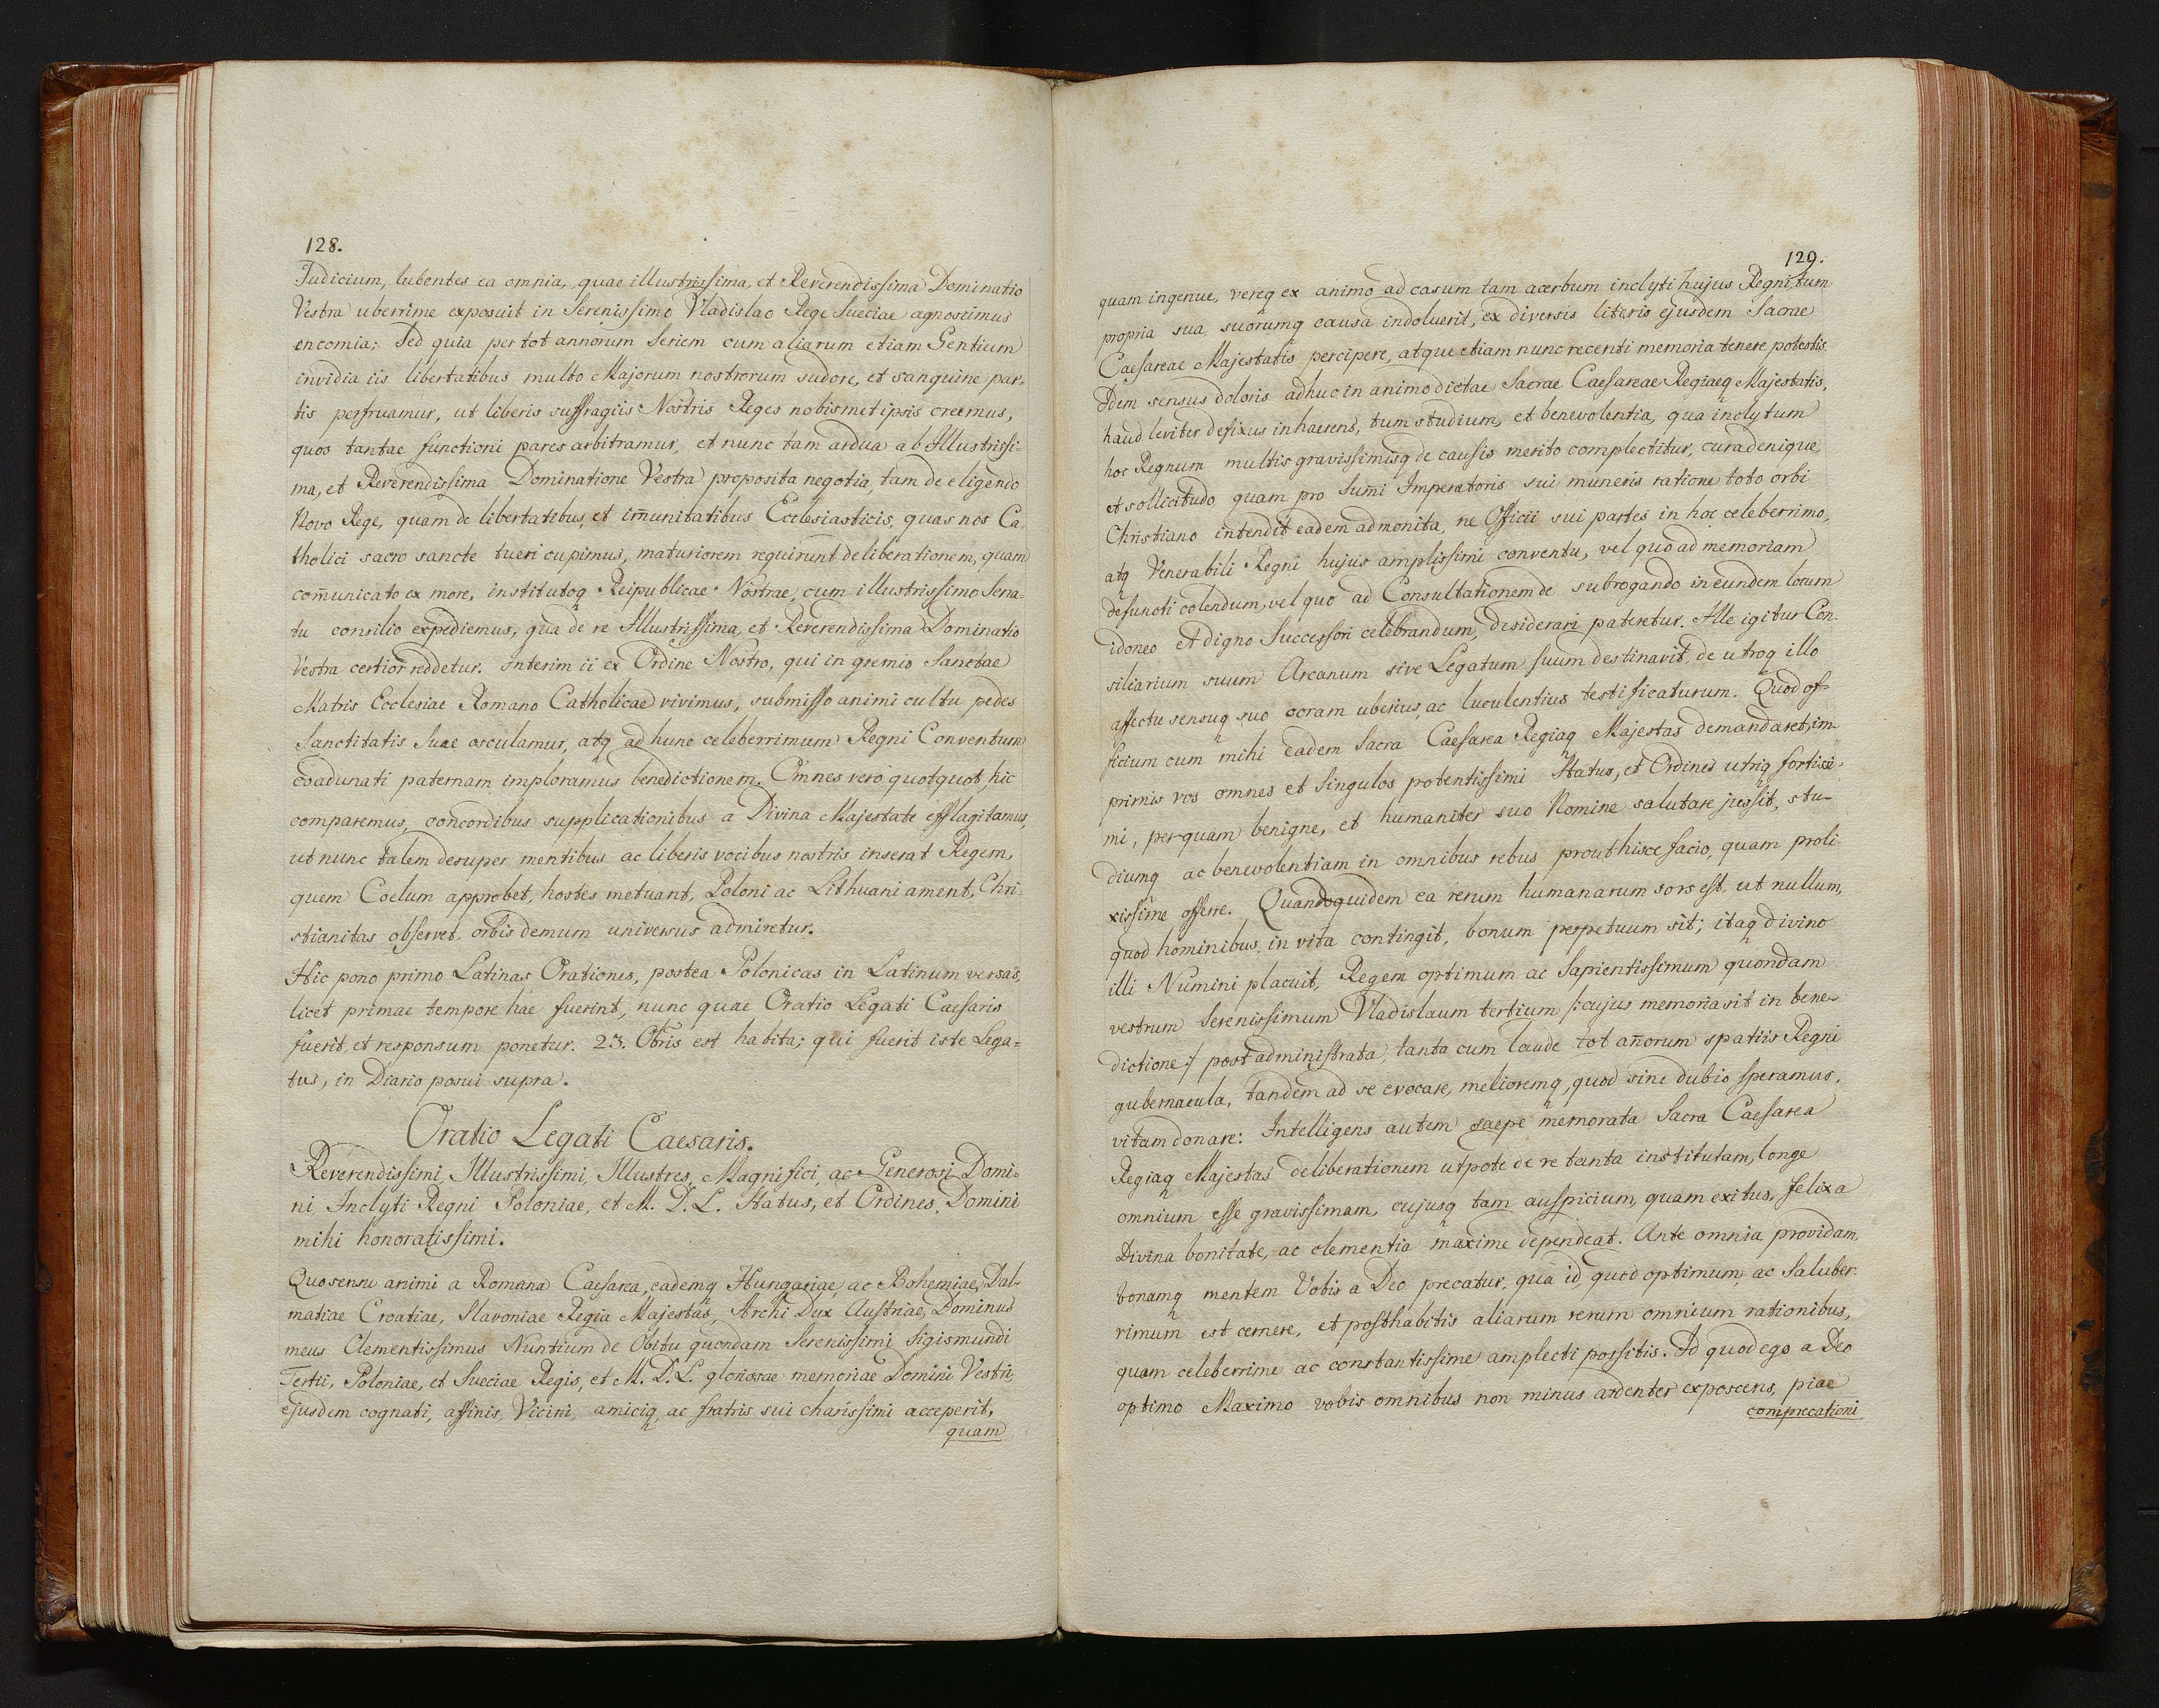 128.
Judicium, lubentes ea omnia, quae illustrissima, et Reverendissima Dominatio
Vestra uberrime exposuit in Serenissimo Vladislao Rege Sueciae agnoscimus
encomia; Sed quia per tot annorum Seriem cum aliarum etiam Gentium
invidia iis libertatibus multo Majorum nostrorum sudore, et sanguine par-
tis perfruamur, ut liberis suffragiis Nostris Reges nobismet ipsis creemus,
quos tantae functioni pares arbitramur, et nunc tam ardua ab Illustrissi=
ma, et Reverendissima Dominatione Vestra proposita negotia, tam de eligendo
Novo Rege, quam de libertatibus, et im̄unitatibus Ecclesiasticis, quas nos Ca
tholici sacro sancte tueri cupimus, maturiorem requirunt deliberationem, quam
com̄unicato ex more, institutoq Reipublicae Nostrae, cum illustrissimo Sena=
tu consilio expediemus, qua de re Illustrissima, et Reverendissima Dominatio
Vestra certior reddetur. Interim ii ex Ordine Nostro, qui in gremio Sanctae
Matris Ecclesiae Romano Catholicae vivimus, submisso animi cultu pedes
Sanctitatis Suae osculamur, atq ad hunc celeberrimum Regni Conventum
coadunati paternam imploramus benedictionem. Omnes vero quotquot hic
comparemus, concordibus supplicationibus a Divina Majestate efflagitamus,
ut nunc talem desuper mentibus ac liberis vocibus nostris inserat Regem,
quem Coelum approbet, hostes metuant, Poloni ac Lithuani ament, Chri-
stianitas observet, orbis demum universus admiretur.
Hic pono primo Latinas Orationes, postea Polonicas in Latinum versas,
licet primae tempore hae fuerint, nunc quae Oratio Legati Caesaris
fuerit, et responsum ponetur. 23. Obris est habita; qui fuerit iste Lega=
tus, in Diario posui supra.
Oratio Legati Caesaris.
Reverendissimi, Illustrissimi, Illustres, Magnifici, ac Generosi Domi-
ni, Inclyti Regni Poloniae, et M. D. L. Status, et Ordines, Domini
mihi honoratissimi.
Quo sensu animi a Romana Caesarea, eademq Hungariae, ac Bohemiae, Dal-
matiae Croatiae, Slavoniae Regia Majestas, Archi Dux Austriae, Dominus
meus Clementissimus Nuntium de Obitu quondam Serenissimi Sigismundi
Tertii, Poloniae, et Sueciae Regis, et M. D. L. gloriosae memoriae Domini Vestri,
ejusdem cognati, affinis, Vicini, amiciq, ac fratris sui charissimi acceperit,
quam
129.
quam ingenue, vereq ex animo ad casum tam acerbum inclyti hujus Regni, tum
propria sua, suorumq causa indoluerit, ex diversis literis ejusdem Sacrae
Caesareae Majestatis percipere, atque etiam nunc recenti memoria tenere potestis.
Idem sensus doloris adhuc in animo dictae Sacrae Caesareae Regiaeq Majestatis,
haud leviter defixus inhaerens, tum studium, et benevolentia, qua inclytum
hoc Regnum multis gravissimisq de causis merito complectitur, cura denique,
et sollicitudo, quam pro Sum̄i Imperatoris sui muneris ratione toto orbi
Christiano intendit eadem admonita, ne Officii sui partes in hoc celeberrimo,
atq Venerabili Regni hujus amplissimi conventu, vel quo ad memoriam
defuncti colendum, vel quo ad Consultationem de subrogando in eundem locum
idoneo et digno Successori celebrandum, desiderari pateretur. Ille igitur Con-
siliarium suum Arcanum sive Legatum suum destinavit, de utroq illo
affectu sensuq suo coram uberius, ac luculentius testificaturum. Quod of-
ficium cum mihi eadem Sacra Caesarea Regiaq Majestas demandaret, im-
primis vos omnes et singulos potentissimi Status, et Ordines utriq fortissi-
mi, perquam benigne, et humaniter suo Nomine salutare jussit, stu-
diumq ac benevolentiam in omnibus rebus prout hisce facio, quam proli-
xissime offerre. Quandoquidem ea rerum humanarum sors est, ut nullum,
quod hominibus in vita contingit, bonum perpetuum sit; itaq divino
illi Numini placuit, Regem optimum ac Sapientissimum quondam
vestrum Serenissimum Vladislaum tertium /:cujus memoria sit in bene-
dictione:/ post administrata, tanta cum laude tot an̄orum spatiis Regni
gubernacula, tandem ad se evocare, melioremq, quod sine dubio speramus,
vitam donare: Intelligens autem saepe memorata Sacra Caesarea
Regiaq Majestas deliberationem utpote de re tanta institutam, longe
omnium esse gravissimam, cujusq tam auspicium, quam exitus, felix a
Divina bonitate, ac clementia maxime dependeat. Ante omnia providam,
bonamq mentem Vobis a Deo precatur, qua id, quod optimum, ac Saluber-
rimum est cernere, et posthabitis aliarum rerum omnium rationibus,
quam celeberrime ac constantissime amplecti possitis. Id quod ego a Deo
optimo Maximo vobis omnibus non minus ardenter exposcens, piae
comprecationi